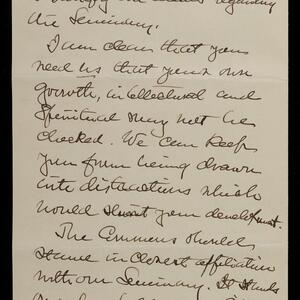 the Seminary.
I am clear that you
need us that your own
growth, intellectual and
spiritual may not be
checked. We can keep
you from being drawn
into distractions which
would your development.
The Commons should
stand in closest affiliation
with our Seminary. It stands